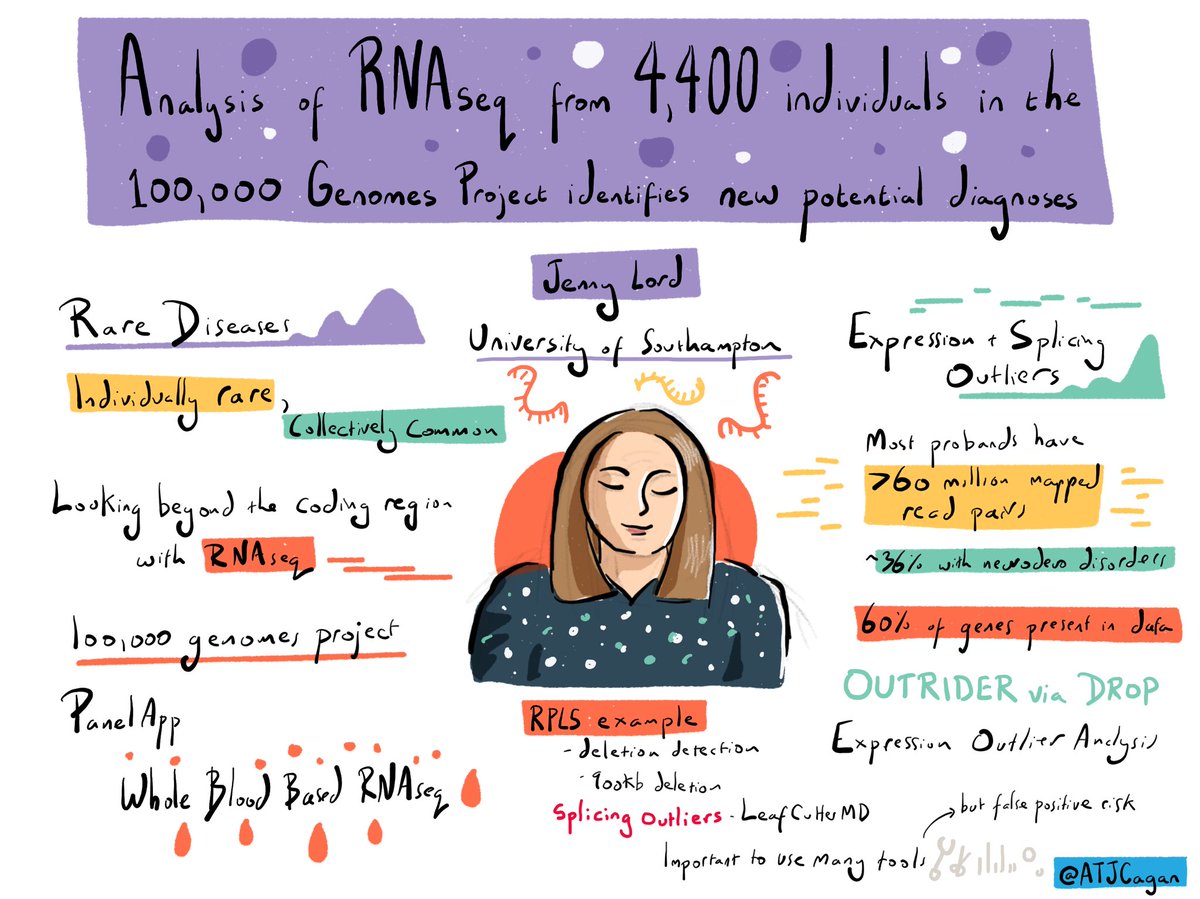 Analysis of RNAseq from 4,400 individuals in the
100,000 Genomes Project identifies new potential diagnoses
Jenny Lord
University of Southampton
Rare Diseases
Individually rare,
Collectively Common
Looking beyond the coding region
with RNAseq
100,000 genomes project
PanelApp
Whole Blood Based RNAseq
RPLS example
- deletion detection
- 900kb deletion
Splicing Outliers - LeafCutterMD
Important to use many tools
but false positive risk
Expression + Splicing
Outliers
Most probands have
>60 million mapped
read pairs
~36% with neurodevo disorders
60% of genes present in data
OUTRIDER via DROP
Expression Outlier Analysis
@ATJCagan